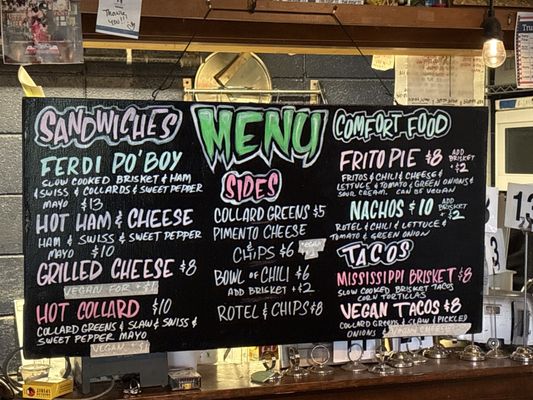 MENU
SANDWICHES
FERDI PO'BOY
SLOW COOKED BRISKET & HAM
& SWISS & COLLARDS & SWEET PEPPER
MAYO $13
HOT HAM & CHEESE
HAM & SWISS & SWEET PEPPER
MAYO $10
GRILLED CHEESE $8
VEGAN FOR +$1
HOT COLLARD $10
COLLARD GREENS & SLAW & SWISS &
SWEET PEPPER MAYO
VEGAN +$1
SIDES
COLLARD GREENS $5
PIMENTO CHEESE
& CHIPS $6
VEGAN +$1
BOWL OF CHILI $6
ADD BRISKET +$2
ROTEL & CHIPS $8
COMFORT FOOD
FRITO PIE $8
ADD
BRISKET
+$2
FRITOS & CHILI & CHEESE &
LETTUCE & TOMATO & GREEN ONIONS &
SOUR CREAM, CAN BE VEGAN
NACHOS $10
ADD
BRISKET
+$2
ROTEL & CHILI & LETTUCE &
TOMATO & GREEN ONION
TACOS
MISSISSIPPI BRISKET $8
SLOW COOKED BRISKET TACOS
CORN TORTILLAS
VEGAN TACOS $8
COLLARD GREENS & SLAW & PICKLED
ONIONS
13
3